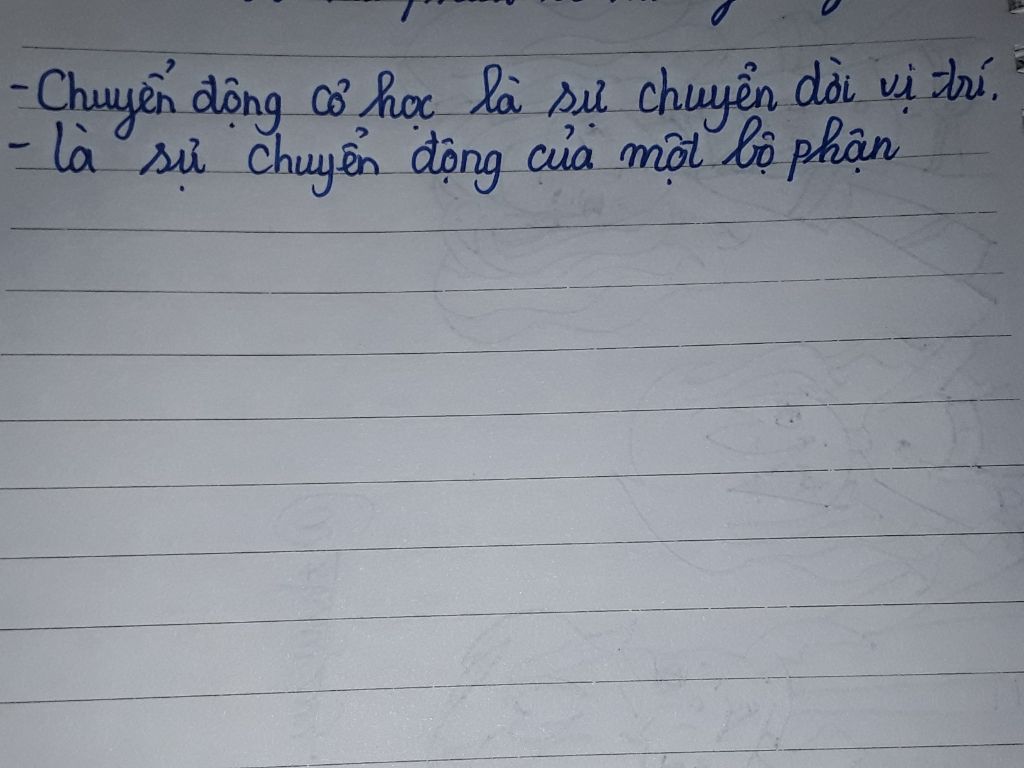 - Chuyển động cơ học là sự chuyển dời vị trí.
- là sự chuyển động của một bộ phận